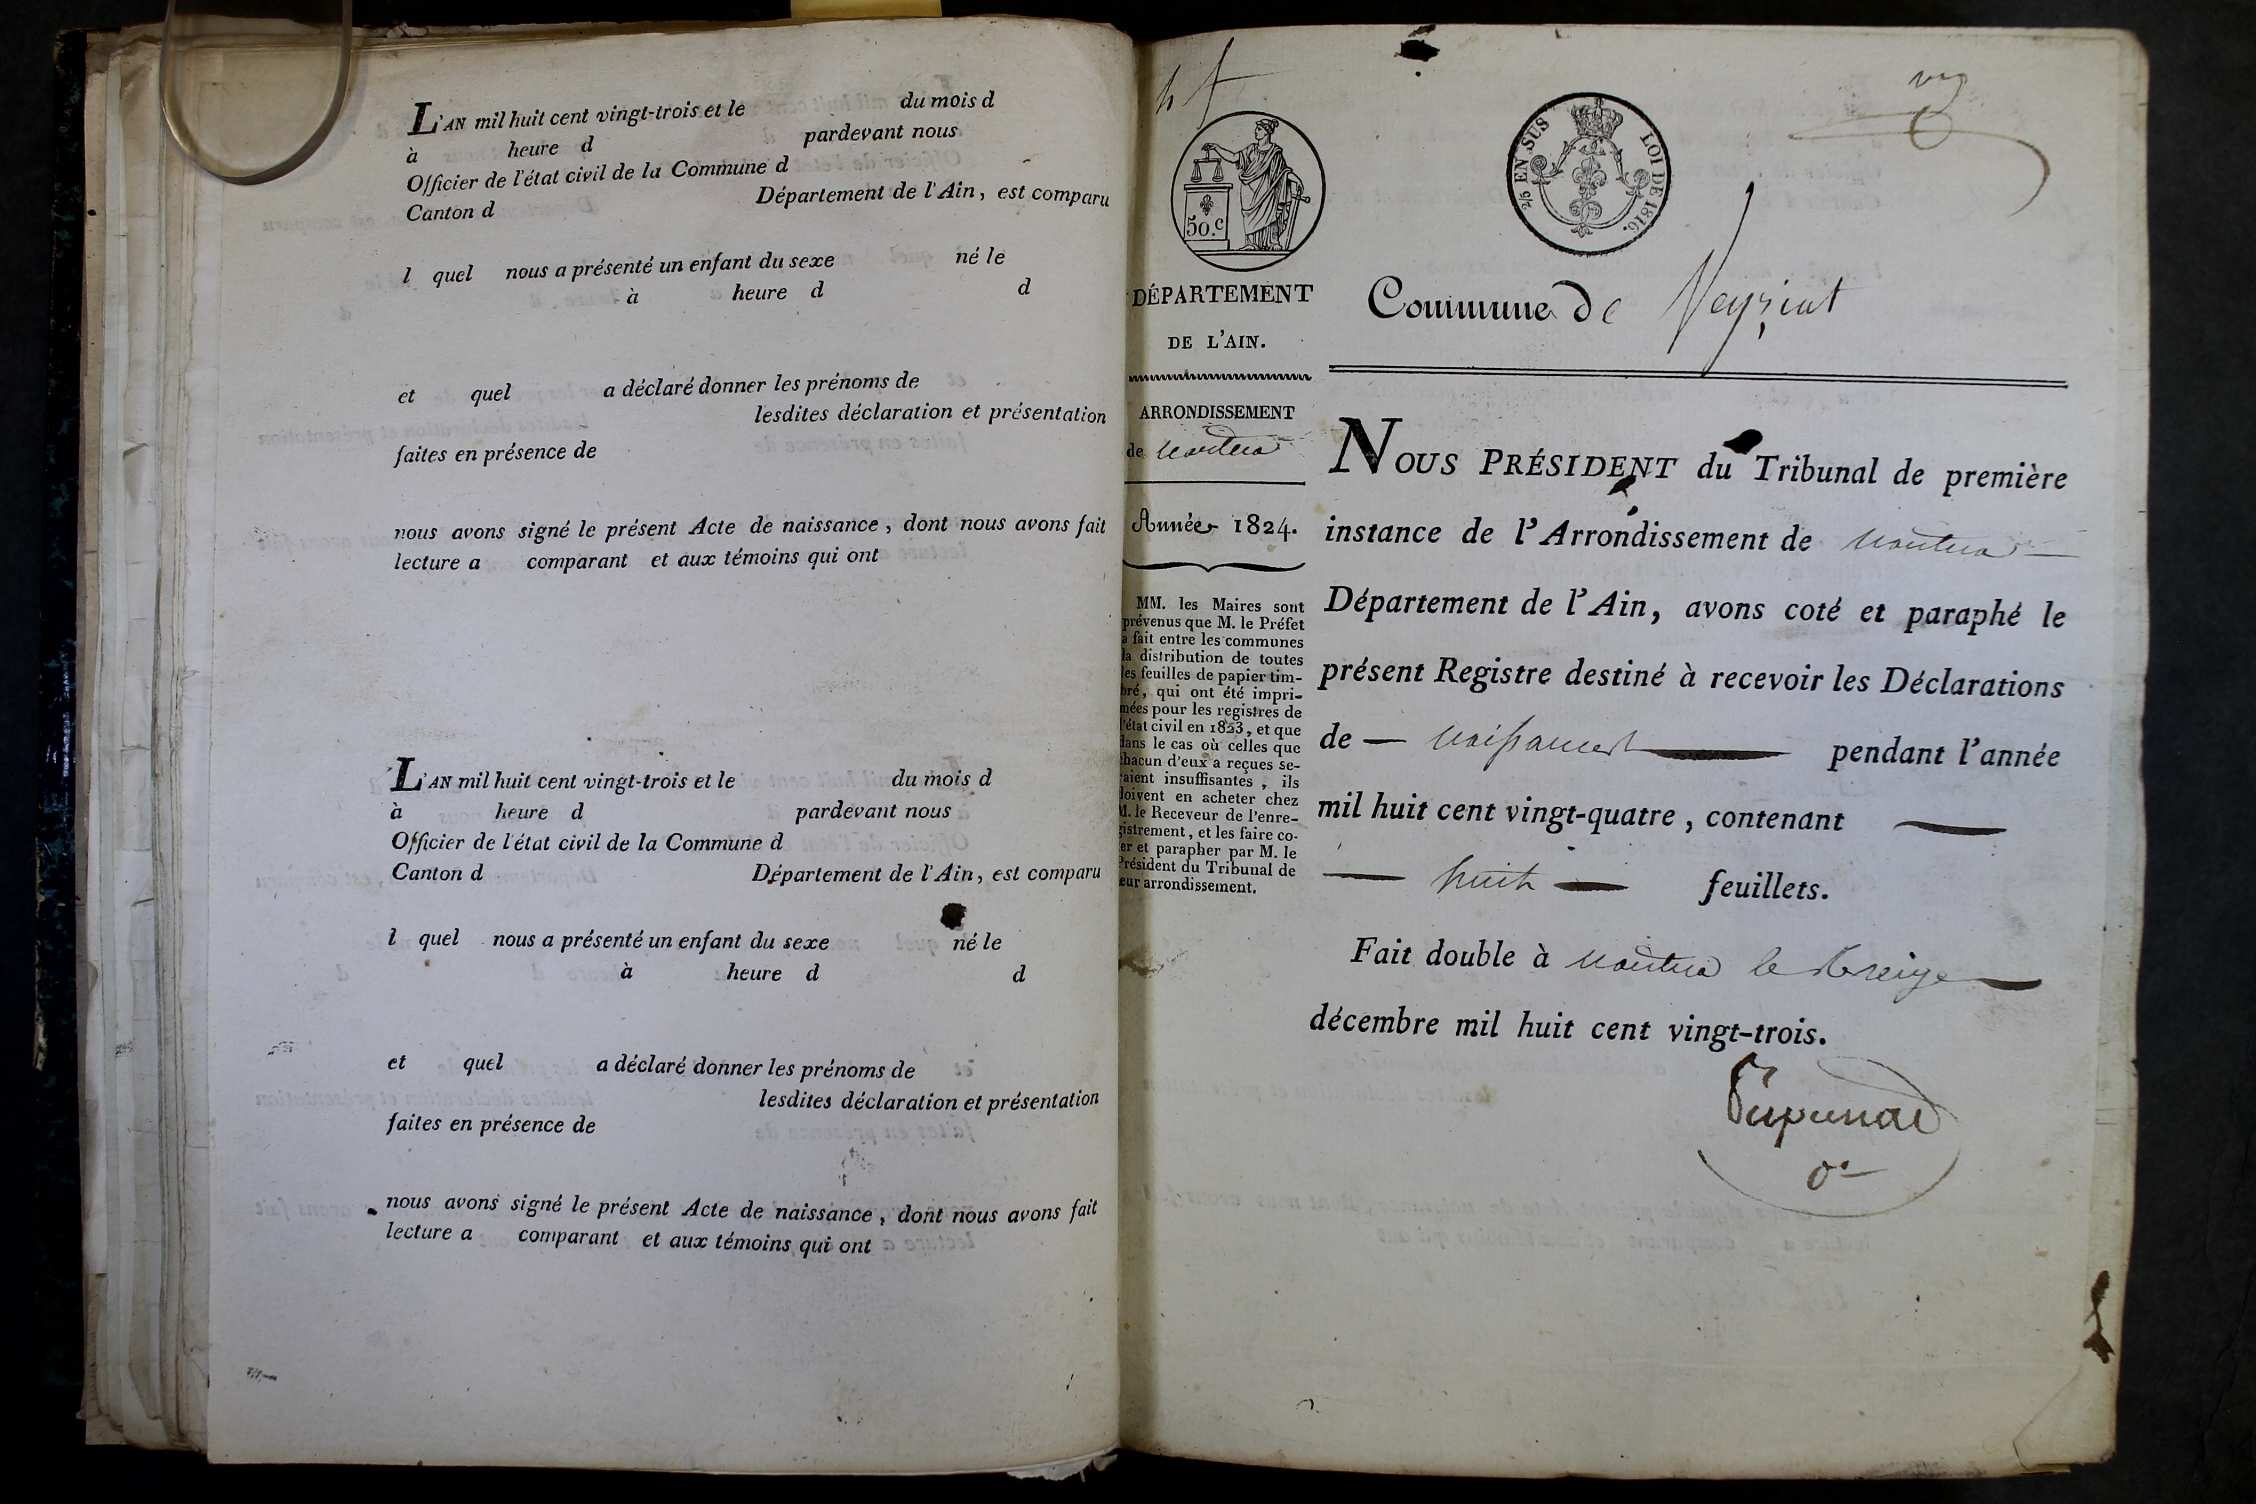 L'AN mil huit cent vingt-trois et le du mois d
à heure d pardevant nous
Officier de l'état civil de la Commune d
Canton d Département de l'Ain, est comparu
l quel nous a présenté un enfant du sexe né le
à heure d d
et quel a déclaré donner les prénoms de
lesdites déclaration et présentation
faites en présence de
nous avons signé le présent Acte de naissance, dont nous avons fait
lecture a comparant et aux témoins qui ont
L'AN mil huit cent vingt-trois et le du mois d
à heure d pardevant nous
Officier de l'état civil de la Commune d
Canton d Département de l'Ain, est comparu
l quel nous a présenté un enfant du sexe né le
à heure d d
et quel a déclaré donner les prénoms de
lesdites déclaration et présentation
faites en présence de
nous avons signé le présent Acte de naissance, dont nous avons fait
lecture a comparant et aux témoins qui ont
50.c
2/5 EN SUS LOI DE 1816.
DÉPARTEMENT
DE L'AIN.
ARRONDISSEMENT
de Nantua
Année 1824.
MM. les Maires sont
prévenus que M. le Préfet
a fait entre les communes
la distribution de toutes
les feuilles de papier tim-
bré, qui ont été impri-
mées pour les registres de
l'état civil en 1823, et que
dans le cas où celles que
chacun d'eux a reçues se-
raient insuffisantes, ils
doivent en acheter chez
M. le Receveur de l'enre-
gistrement, et les faire co-
ter et parapher par M. le
Président du Tribunal de
leur arrondissement.
Commune de Veyziat
NOUS PRÉSIDENT du Tribunal de première
instance de l'Arrondissement de Nantua
Département de l'Ain, avons coté et paraphé le
présent Registre destiné à recevoir les Déclarations
de — naissances — pendant l'année
mil huit cent vingt-quatre, contenant —
— huit — feuillets.
Fait double à Nantua le treize —
décembre mil huit cent vingt-trois.